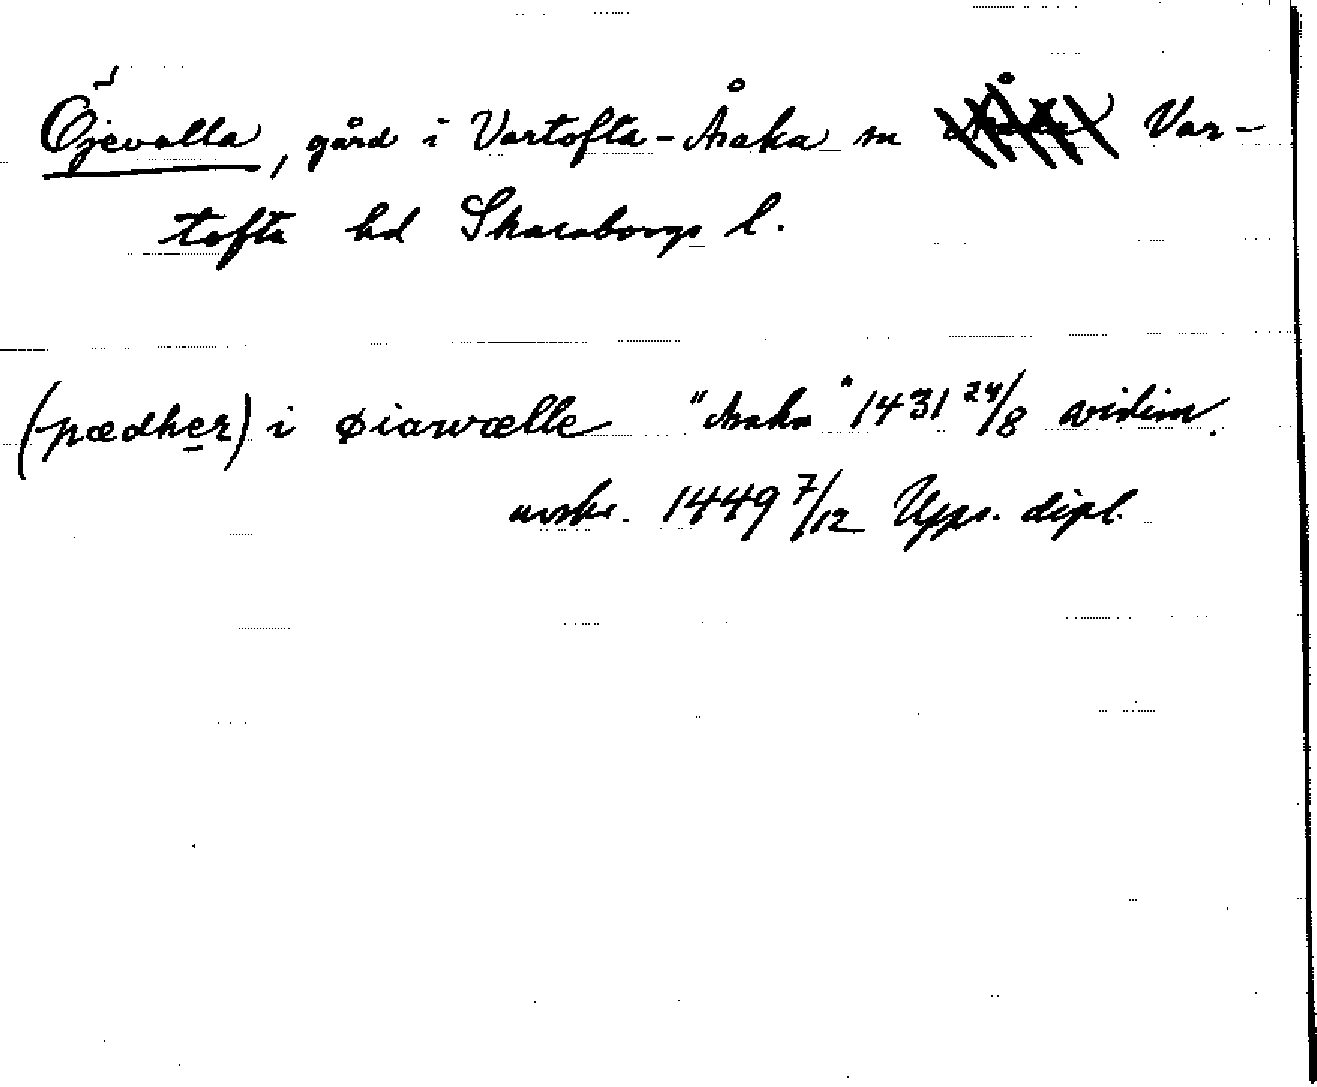 Öjevalla, gård i Vartofta-Åsaka sn Var-
tofta hd Skaraborgs l.
(pædher) i øiawælle "Asaka" 1431 24/8 vidim.
avskr. 1449 7/12 Upps. dipl.